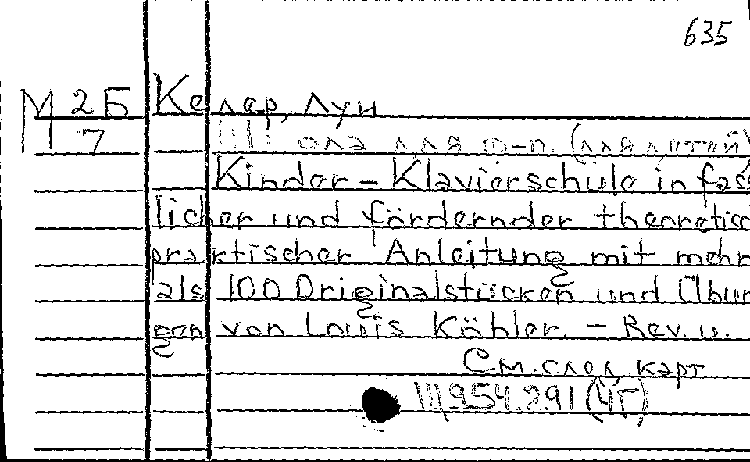 635
М 2Б Келер, Луи
7 Школа для ф-п. (для детей)
Kinder-Klavierschule in fass
licher und fördernder theoretisc
praktischer Anleitung mit mehr
als 100 Originalstücken und Übun
gen von Louis Köhler. - Rev. u.
См. след карт
Ш954.291 (ЧГ)